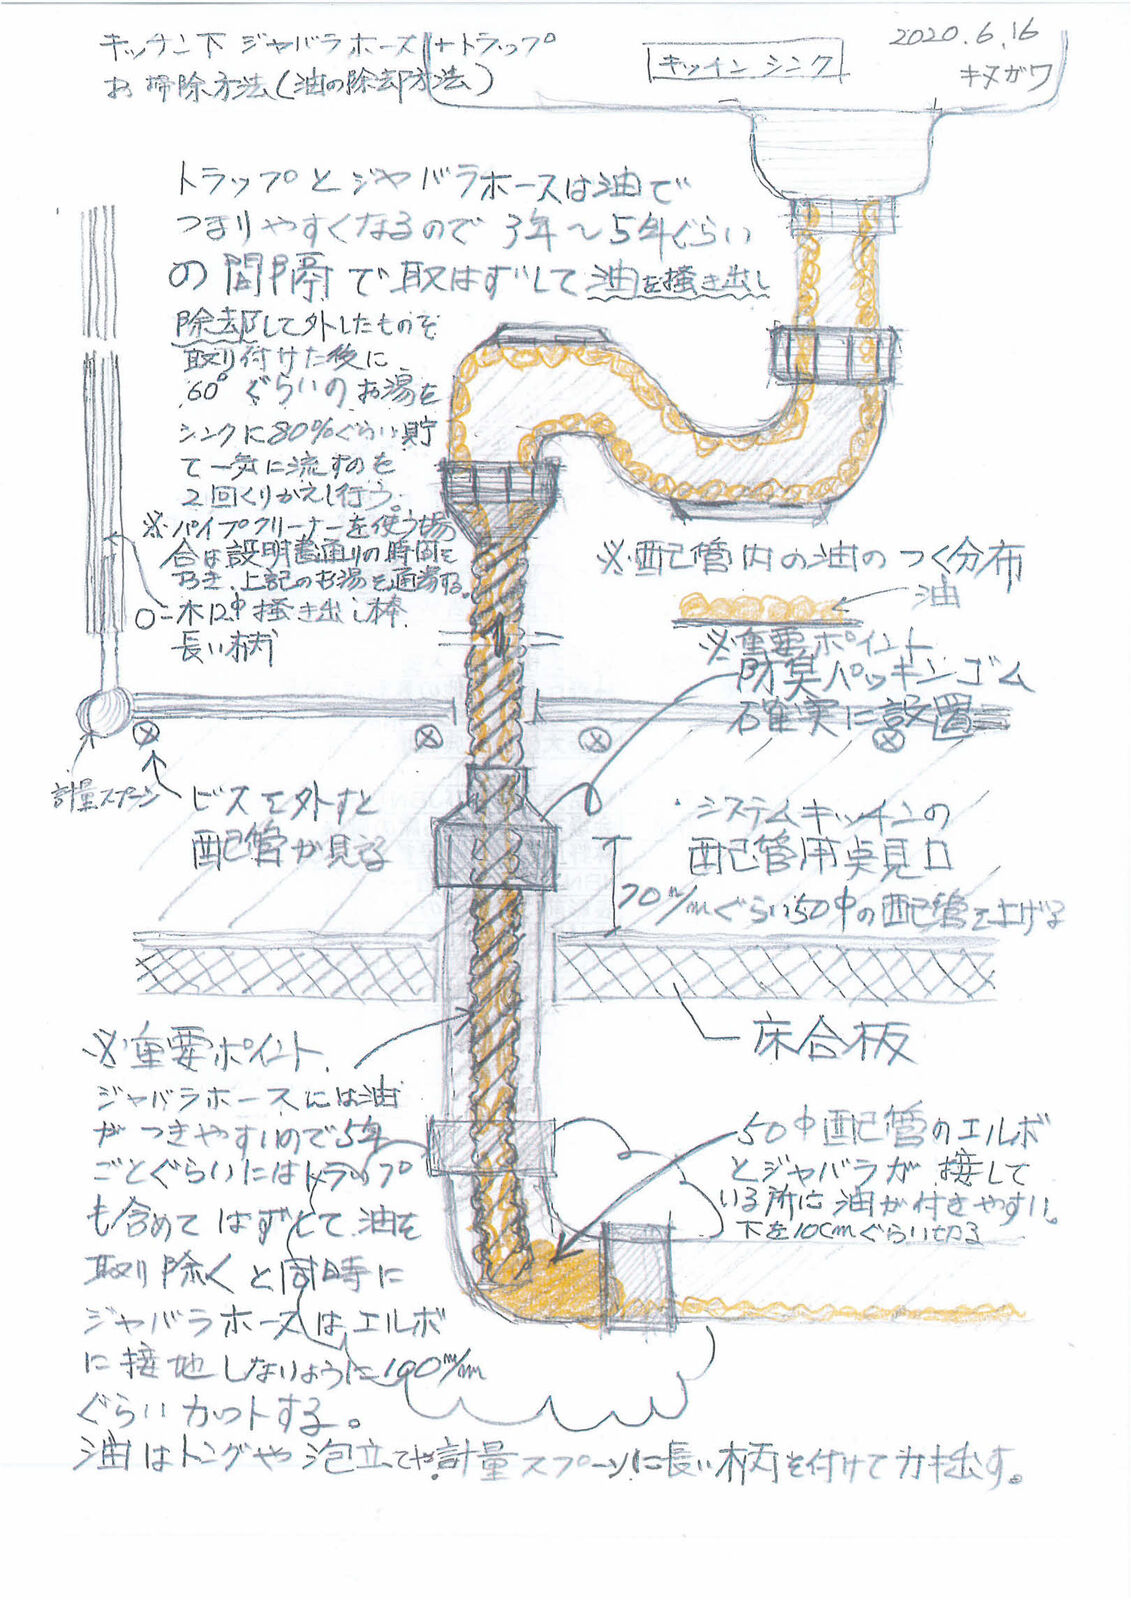 キッチン下 ジャバラホース+トラップ
お掃除方法(油の除却方法)
キッチン シンク
2020.6.16
キヌガワ
トラップとジャバラホースは油で
つまりやすくなるので3年〜5年ぐらい
の間隔で取はずして油を掻き出し
除却して外したものを
取り付けた後に
60°ぐらいのお湯を
シンクに80%ぐらい貯
て一気に流すのを
2回くりかえし行う。
※パイプクリーナーを使う場
合は説明書通りの時間を
おき、上記のお湯を通湯する。
掻き出し棒
長い柄
計量スプーン
ビスを外すと
配管が見る
※配管内の油のつく分布
油
※重要ポイント
防臭パッキンゴム
確実に設置
・システムキッチンの
配管用点見口
70m/mぐらい50中の配管を上げる
床合板
※重要ポイント
ジャバラホースには油
がつきやすいので5年
ごとぐらいにはトラップ
も含めてはずして油を
取り除くと同時に
ジャバラホースはエルボ
に接地しないように100m/m
ぐらいカットする。
油はトングや泡立てや計量スプーンに長い柄を付けてカキ出す。
50中配管のエルボ
とジャバラが接して
いる所に油が付きやすい。
下を10cmぐらい切る